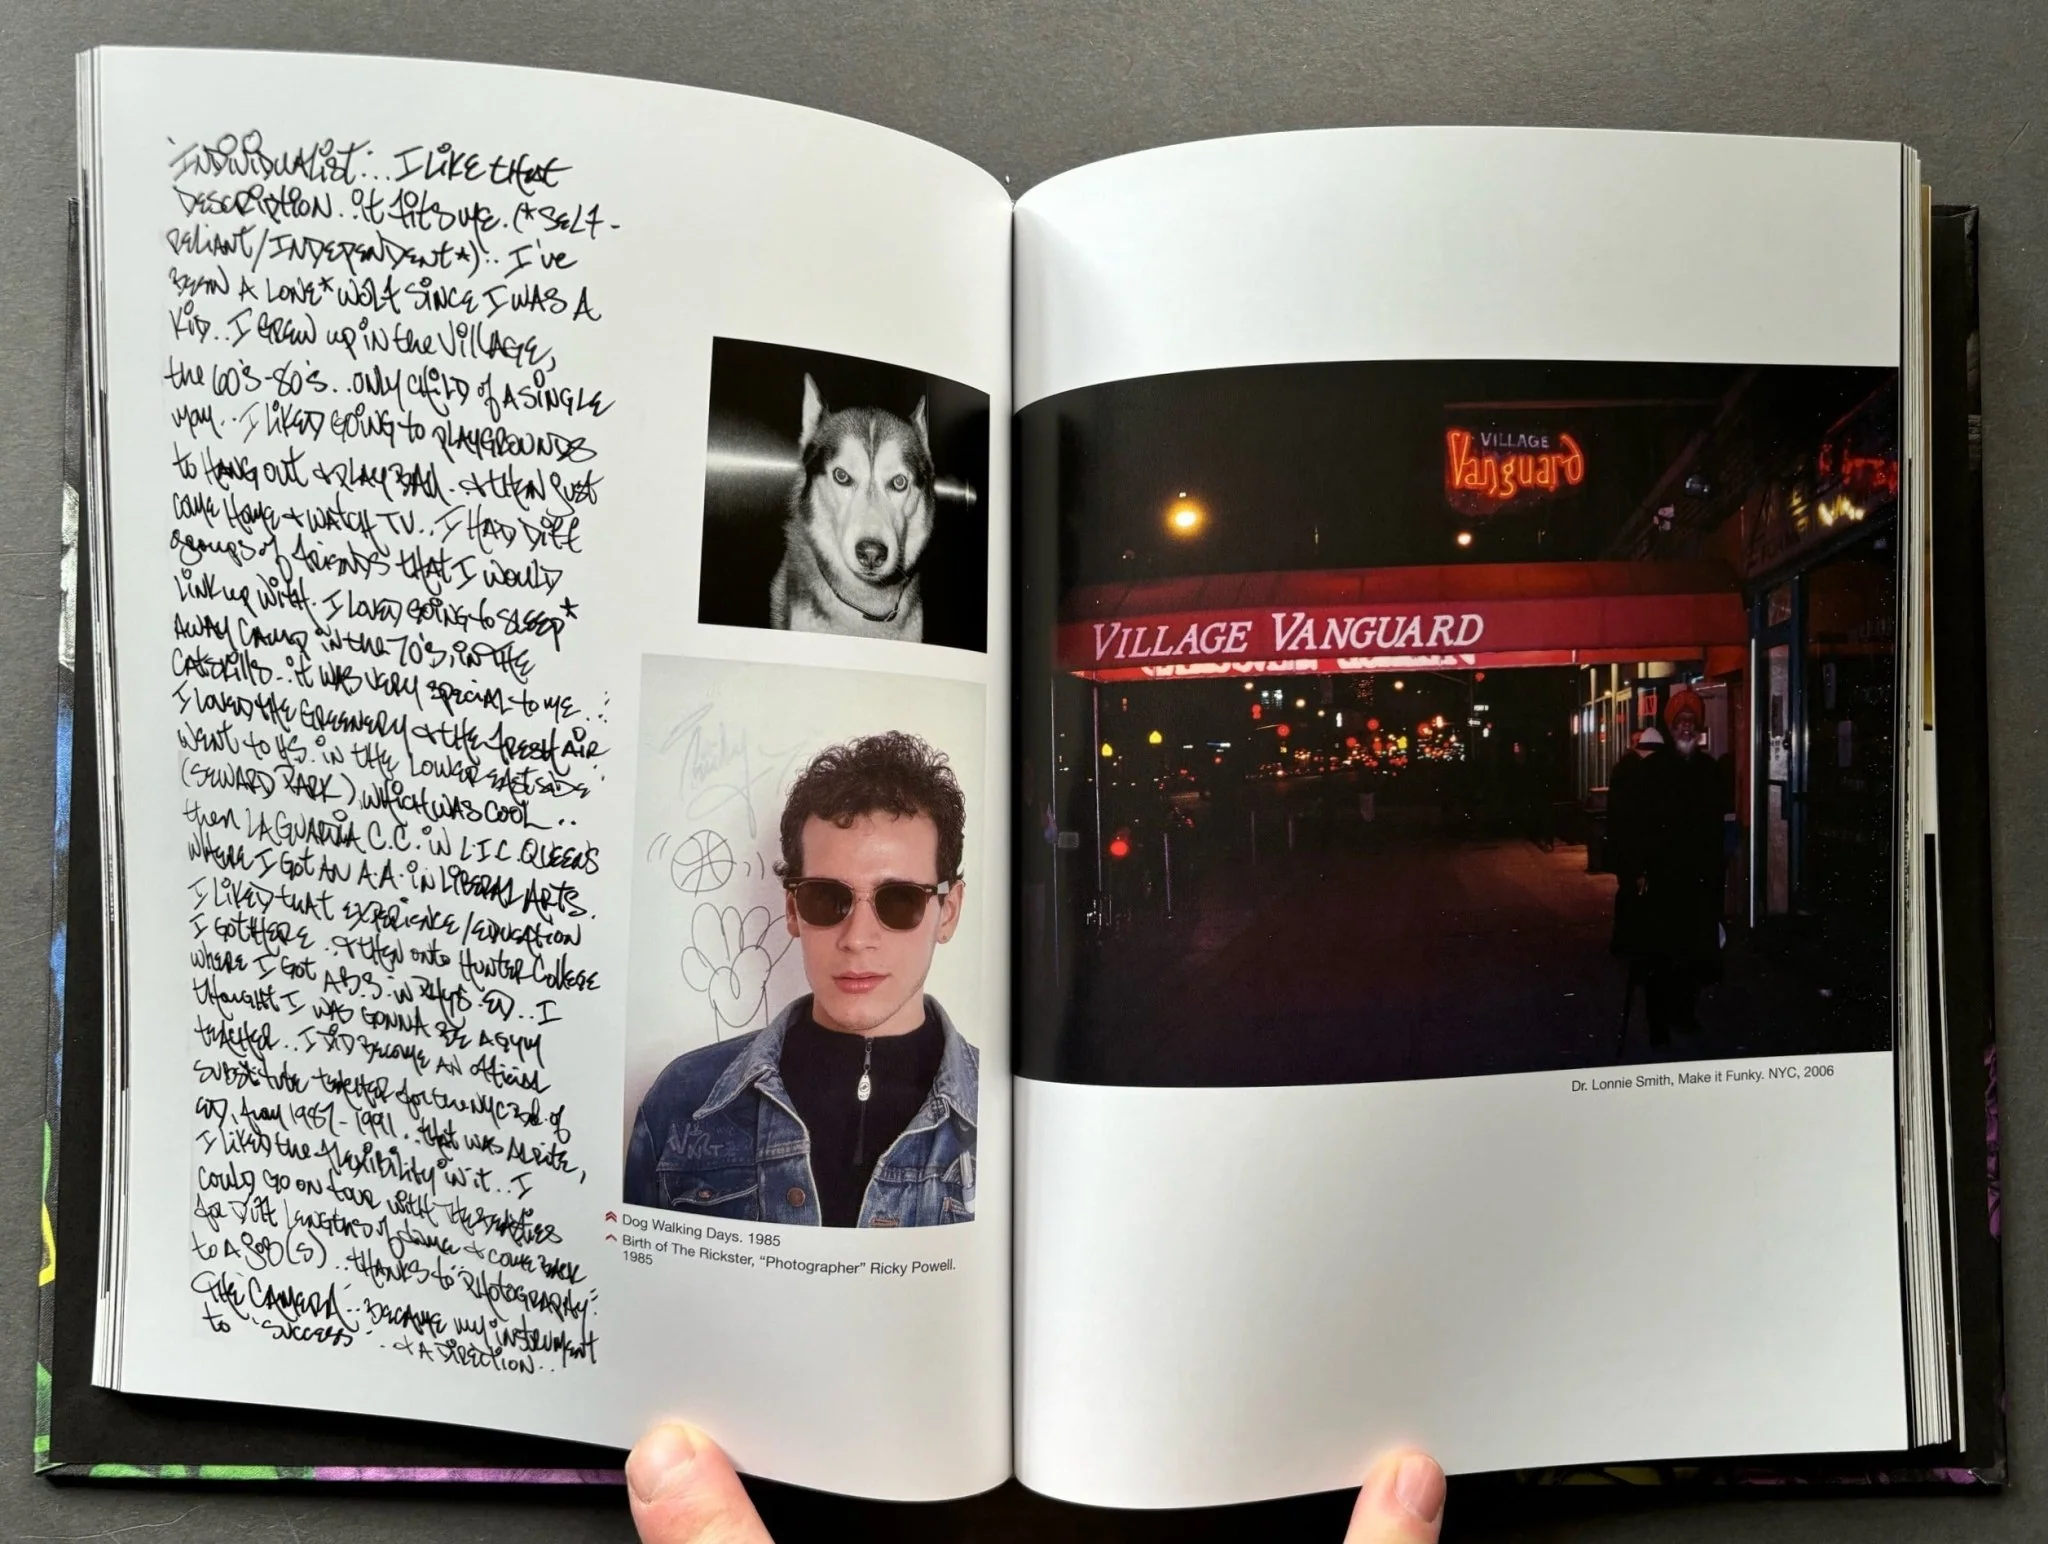 'INDIVIDUALIST'... I LIKE that
DESCRIPTION.. it fits me. (*SELF-
RELIANT/INDEPENDENT*).. I've
BEEN A LONE* WOLF SINCE I WAS A
KID.. I GREW up in the VILLAGE,
the 60's-80's.. ONLY CHILD of A SINGLE
mom.. I LIKED GOING to PLAYGROUNDS
to HANG OUT & PLAY BALL.. & then just
come Home & WATCH TV.. I HAD Diff
groups of friends THAT I WOULD
LINK up WITH. I LOVED GOING to SLEEP*
AWAY CAMP in the 70's, in THE
CATSKILLS.. it WAS VERY SPECIAL to me..
I LOVED the GREENERY & THE fRESH AIR
WENT to H.S. in the LOWER EASTSIDE
(SEWARD PARK) WHICH WAS COOL..
then LAGUARDIA C.C. in L.I.C. QUEENS
WHERE I GOT AN A.A. in LIBERAL ARTS.
I LIKED that EXPERIENCE/EDUCATION
I GOT HERE.. & THEN onto HUNTER COLLEGE
where I GOT A B.S. in PHYS. ED... I
thought I WAS GONNA BE A GYM
teacher.. I DID BECOME AN official
substitute teacher for the NYC Bd. of
ED, from 1987-1991.. that was ALRITE,
I LIKED the flEXIBILITY in it.. I
COULD GO ON tour with THE BEASTIES
for Diff LENGTHS of time & COME BACK
to A JOB(S)... THANKS to "PHOTOGRAPHY"
THE CAMERA.. BECAME my instrument
to 'success'.. & A DIRECTION..
Ricky
VILLAGE
Vanguard
VILLAGE VANGUARD
Dr. Lonnie Smith, Make it Funky. NYC, 2006
Dog Walking Days. 1985
Birth of The Rickster, “Photographer” Ricky Powell.
1985